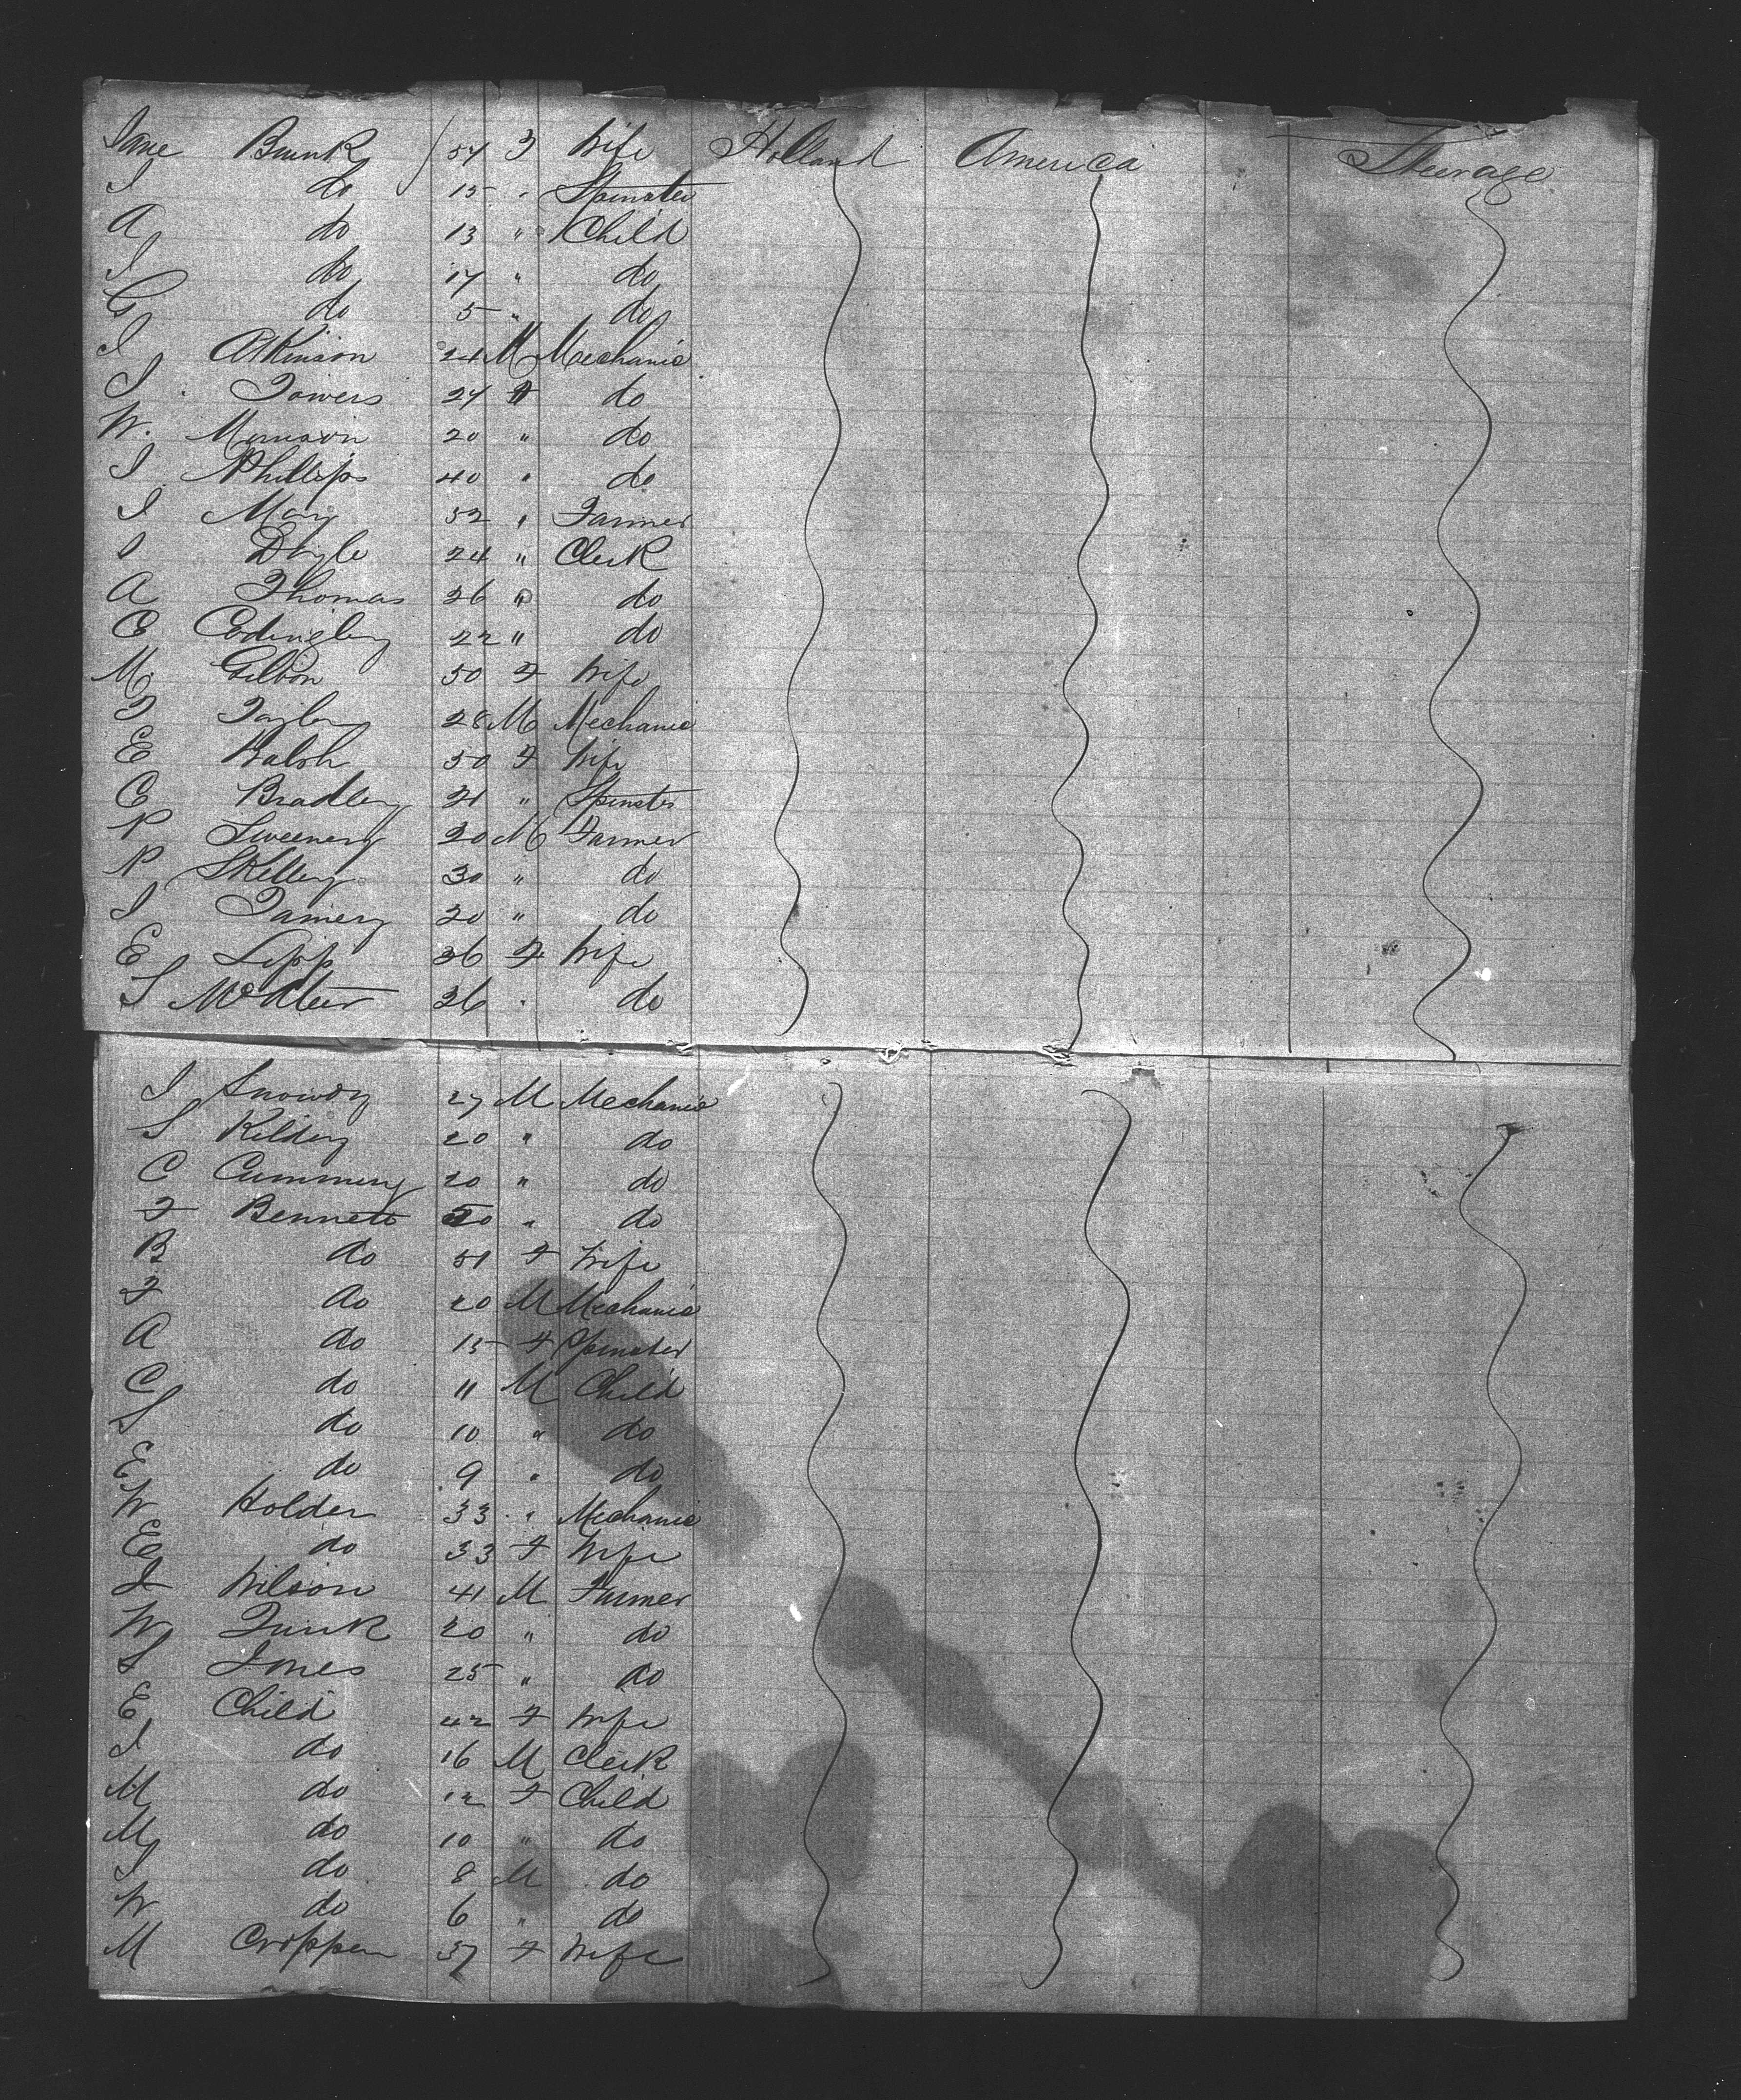 Jane Brunk 54 F Wife Holland America Steerage
J do 15 " Spinster
A do 13 " Child
J do 17 " do
G do 5 " do
J Atkinson 24 M Mechanic
J Towers 24 " do
W. Morrison 20 " do
J Phillips 40 " do
J Mary 32 " Farmer
J Doyle 24 " Clerk
A Thomas 26 " do
C 22 " do
M Gibbon 50 F Wife
T Taylor 28 M Mechanic
E Walsh 50 F Wife
C Bradley 21 " Spinster
P Sweeney 20 M Farmer
P Skelley 30 " do
J 20 " do
E Lipp 36 F Wife
S McAteer 36 " do
J Snowdy 27 M Mechanic
S Kildey 20 " do
C Cummings 20 " do
F Bennett 50 " do
B do 51 F Wife
F do 20 M Mechanic
A do 15 F Spinster
C do 11 M Child
S do 10 " do
E do 9 " do
W Holden 33 " Mechanic
E do 33 F Wife
J Wilson 41 M Farmer
W Turk 20 " do
S Jones 25 " do
E Child 42 F Wife
J do 16 M Clerk
M do 12 F Child
M do 10 " do
J do 8 M do
W do 6 " do
M Cropper 37 F Wife